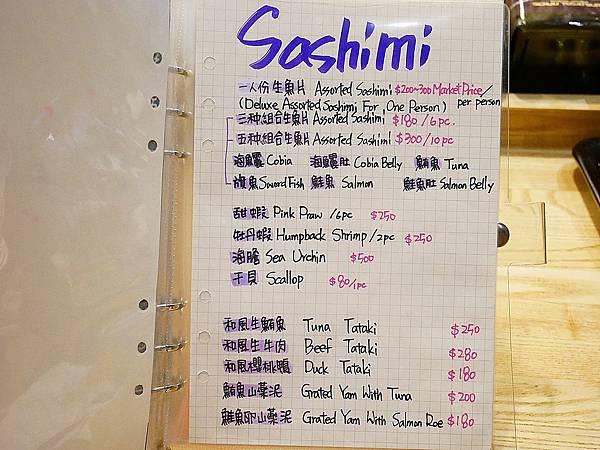 Sashimi
一人份生魚片 Assorted Sashimi $200~300 Market Price/
(Deluxe Assorted Sashimi For One Person) per person
三种組合生魚片 Assorted Sashimi $180/6pc.
五种組合生魚片 Assorted Sashimi $300/10pc
海鱺 Cobia 海鱺肚 Cobia Belly 鮪魚 Tuna
旗魚 Sword Fish 鮭魚 Salmon 鮭魚肚 Salmon Belly
甜蝦 Pink Praw /6pc $250
牡丹蝦 Humpback Shrimp /2pc $250
海膽 Sea Urchin $500
干貝 Scallop $80/1pc
和風生鮪魚 Tuna Tataki $250
和風生牛肉 Beef Tataki $280
和風櫻桃鴨 Duck Tataki $180
鮪魚山藥泥 Grated Yam With Tuna $200
鮭魚卵山藥泥 Grated Yam With Salmon Roe $180